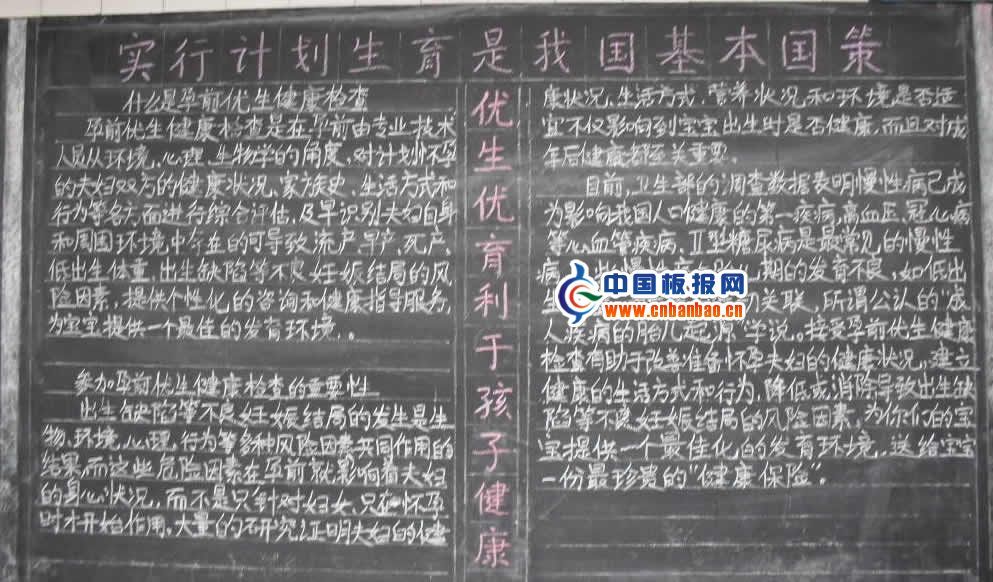 实行计划生育是我国基本国策
什么是孕前优生健康检查
孕前优生健康检查是在孕前由专业技术
人员从环境、心理、生物学的角度,对计划怀孕
的夫妇双方的健康状况、家族史、生活方式和
行为等各方面进行综合评估,及早识别夫妇自身
和周围环境中存在的可导致流产、早产、死产、
低出生体重、出生缺陷等不良妊娠结局的风
险因素,提供个性化的咨询和健康指导服务,
为宝宝提供一个最佳的发育环境。
参加孕前优生健康检查的重要性
出生缺陷等不良妊娠结局的发生是生
物、环境、心理、行为等多种风险因素共同作用的
结果,而这些危险因素在孕前就影响着夫妇
的身心状况,而不是只针对妇女,只在怀孕
时才开始作用。大量的研究证明夫妇的健
优生优育利于孩子健康
康状况、生活方式、营养状况和环境是否适
宜不仅影响到宝宝出生时是否健康,而且对成
年后健康都至关重要。
目前,卫生部的调查数据表明慢性病已成
为影响我国人口健康的第一疾病,高血压、冠心病
等心血管疾病、II型糖尿病是最常见的慢性
病 期的发育不良,如低出
生 关联,所谓公认的“成
人疾病的胎儿起源”学说。接受孕前优生健康
检查有助于改善准备怀孕夫妇的健康状况,建立
健康的生活方式和行为,降低或消除导致出生缺
陷等不良妊娠结局的风险因素,为你们的宝
宝提供一个最佳化的发育环境,送给宝宝
一份最珍贵的“健康保险”。
中国板报网
www.cnbanbao.cn